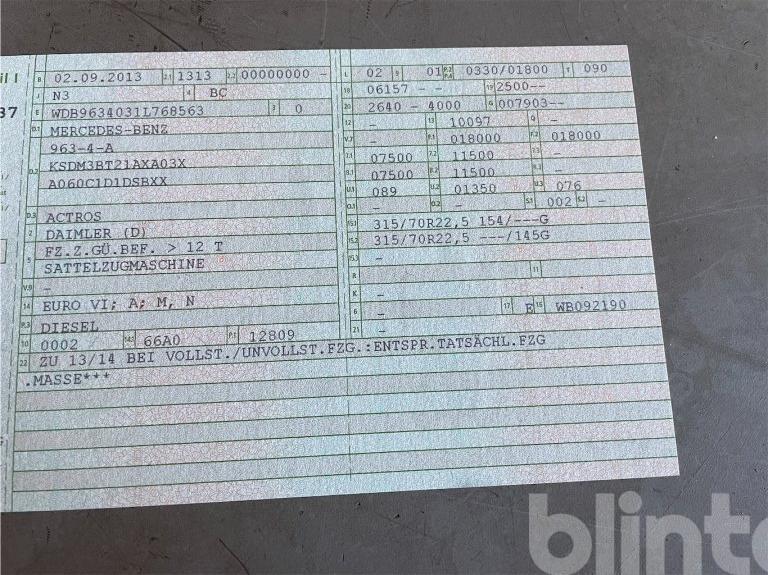 il I
B 02.09.2013 2.1 1313 2.2 00000000 -
J N3 4 BC
37
E WDB9634031L768563 3 0
D.1 MERCEDES-BENZ
963-4-A
D.2 KSDM3BT21AXA03X
A060C1D1DSBXX
D.3 ACTROS
2 DAIMLER (D)
5 FZ.Z.GÜ.BEF. > 12 T
SATTELZUGMASCHINE
V.9 -
14 EURO VI; A; M, N
P.3 DIESEL
10 0002 14.1 66A0 P.1 12809
22 ZU 13/14 BEI VOLLST./UNVOLLST.FZG.:ENTSPR.TATSÄCHL.FZG
.MASSE***
L 02 9 01 P.2 P.4 0330/01800 T 090
18 06157 - - 19 2500--
20 2640 - 4000 G 007903--
12 - 13 10097 Q -
V.7 - F.1 018000 F.2 018000
7.1 07500 7.2 11500 7.3 -
8.1 07500 8.2 11500 8.3 -
U.1 089 U.2 01350 U.3 076
O.1 - O.2 - S.1 002 S.2 -
15.1 315/70R22,5 154/---G
15.2 315/70R22,5 ---/145G
15.3 -
R 11
K -
6 - 17 E 16 WB092190
21 -
blinto